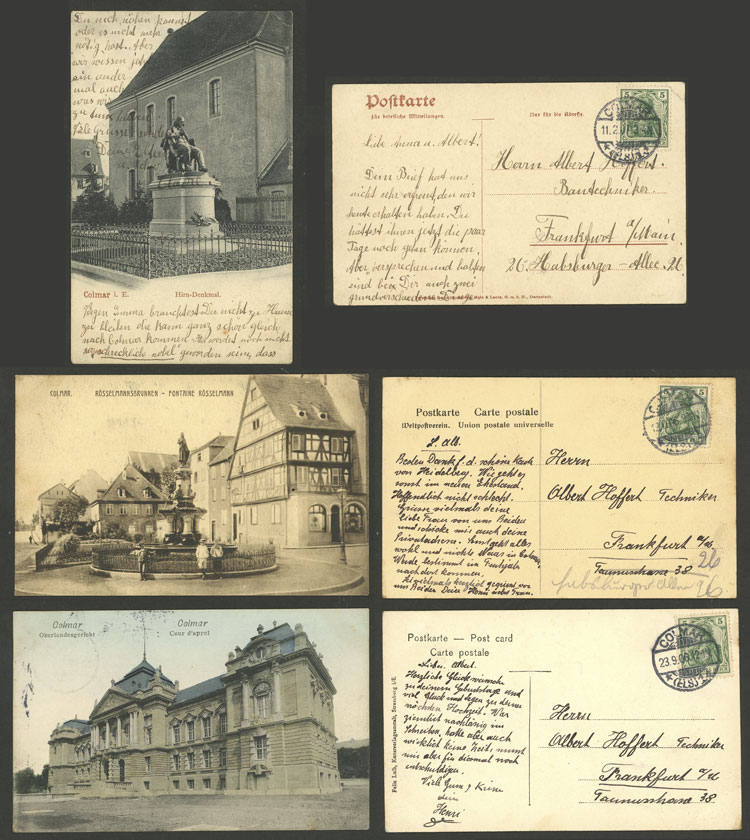 Du
oder es nicht mehr
nötig hast. Aber
wir wissen jetzt
ein ander
mal auch
was wir
zu tun
Viele Grüsse
Colmar i. E. Hirn-Denkmal.
Wegen Emma brauchtest Du nicht zu Hause
zu bleiben die kann ganz schon gleich
nach Colmar kommen. Ihr werdet noch nicht
so schrecklich nobel geworden sein, dass
Postkarte
für briefliche Mitteilungen. Nur für die Adresse.
COLMAR
(ELS)
5 5
Liebe Anna u. Albert!
Dein Brief hat uns
nicht sehr erfreut, den wir
heute erhalten haben. Du
hättest ihnen jetzt die paar
Tage noch geben können.
Aber versprechen und halten
sind bei Dir auch zwei
grundverschiedene Dinge.
Herrn Albert Hoffert.
Bautechniker.
Frankfurt a/Main.
26. Habsburger-Allee. 26
COLMAR. RÖSSELMANNSBRUNNEN - FONTAINE RÖSSELMANN
Postkarte Carte postale
Weltpostverein. Union postale universelle
COLMAR
5
L. Alb.
Besten Dank f. d. schöne Karte
von Heidelberg. Wie geht es
sonst im neuen Ehestand.
Hoffendlich nicht schlecht.
Grüsse vielmals deine
liebe Frau von uns Beiden
und schicke mir auch deine
Privatadresse. Sonst geht alles
wohl und nichts Neues in Colmar.
Werde bestimmt im Frühjahr
nach dort kommen.
Herrn
Albert Hoffert Techniker
Frankfurt a/M.
Taunusstrasse 38
26
Habsburger Allee 26
Colmar Colmar
Oberlandesgericht Cour d'appel
Postkarte — Post card
Carte postale
COLMAR
23.9.06
(ELS)
5
Felix Luib, Kunstverlagsanstalt, Strassburg i/E.
Lieber Albert.
Herzliche Glückwünsche
zu deinem Geburtstage und
viel Glück und Segen zu deiner
nächsten Hochzeit. War
ziemlich nachlässig im
Schreiben, hatte aber auch
wirklich keine Zeit, musst
mir aber für diesmal noch
entschuldigen.
Viele Grüsse & Küsse
dein
Henri
Herrn
Albert Hoffert Techniker
Frankfurt a/M
Taunusstrasse 38